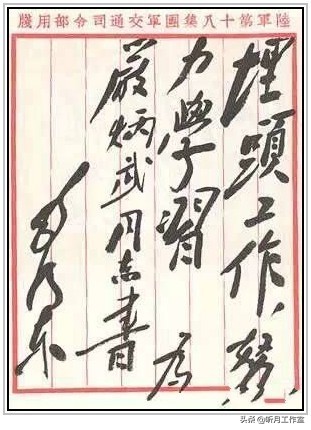 陸軍第十八集團軍交通司令部用牋
埋頭工作，努
力學習 为
嚴炳武同志書
毛泽东
头条 @听月工作室